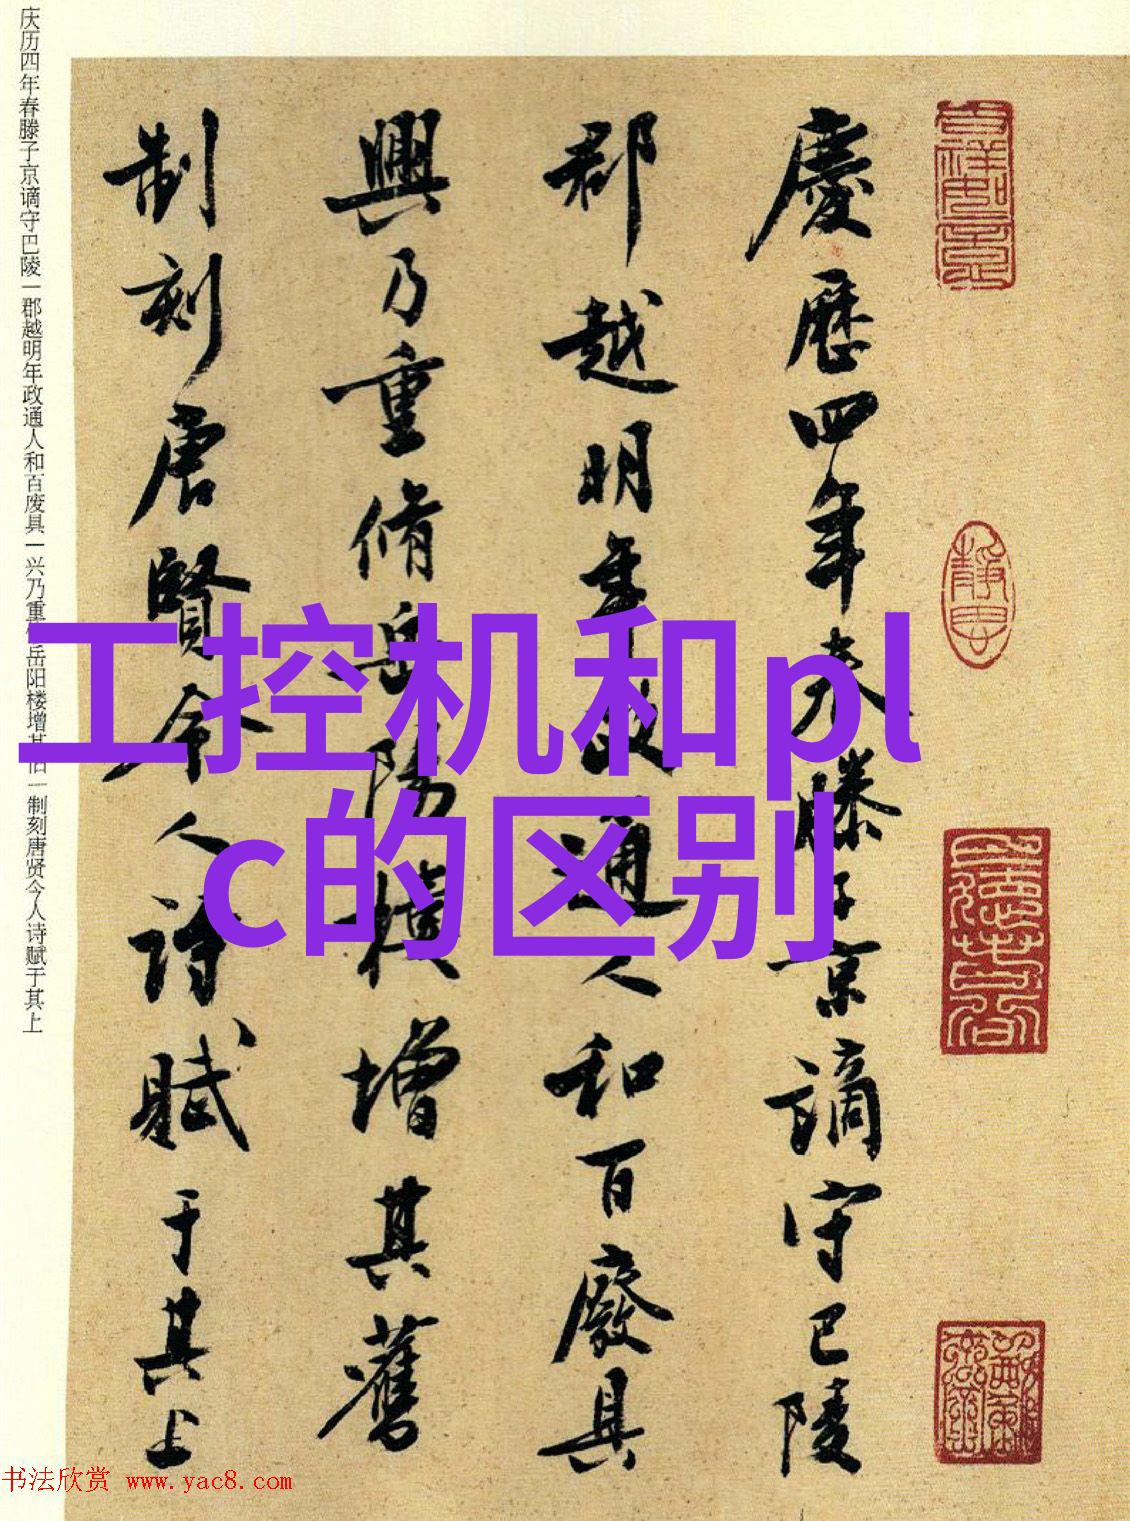 慶歷四年春滕子京謫守巴陵
郡越明年政通人和百廢具
興乃重脩岳陽樓增其舊
制刻唐賢今人詩賦于其上
庆历四年春滕子京谪守巴陵一郡越明年政通人和百废具一兴乃重修岳阳楼增其旧一制刻唐贤今人诗赋于其上
工控机和pl
c的区别
书法欣赏 www.yac8.com